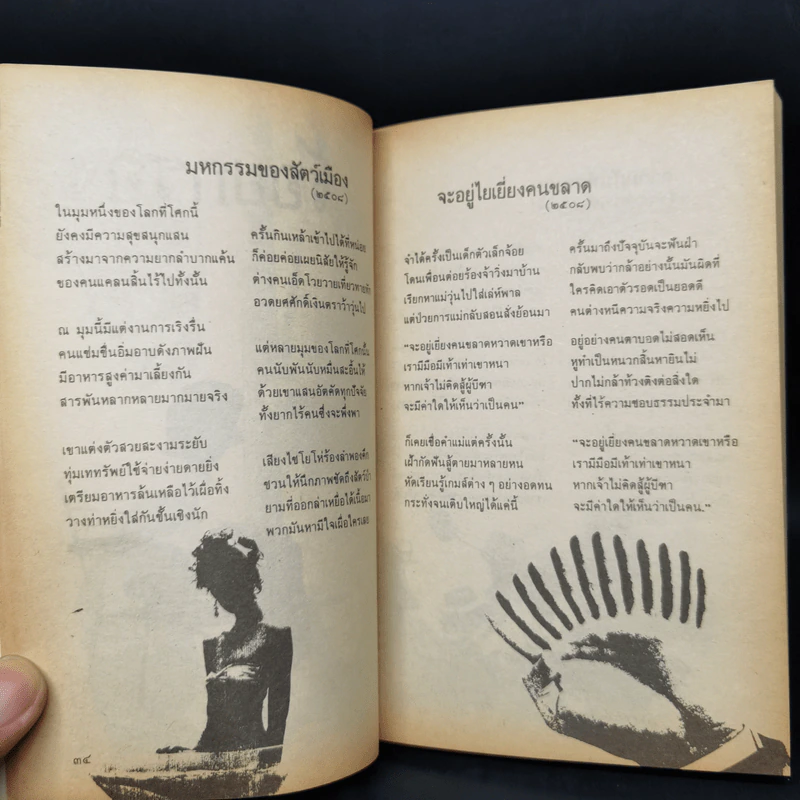 มหกรรมของสัตว์เมือง
(๒๕๐๘)
ในมุมหนึ่งของโลกที่โศกนี้
ยังคงมีความสุขสนุกแสน
สร้างมาจากความยากลำบากแค้น
ของคนแคลนสิ้นไร้ไปทั้งนั้น
ณ มุมนี้มีแต่งานการเริงรื่น
คนแช่มชื่นอิ่มอาบดังภาพฝัน
มีอาหารสูงค่ามาเลี้ยงกัน
สารพันหลากหลายมากมายจริง
เขาแต่งตัวสวยสะงามระยับ
ทุ่มเททรัพย์ใช้จ่ายง่ายดายยิ่ง
เตรียมอาหารล้นเหลือไว้เผื่อทิ้ง
วางท่าหยิ่งใส่กันชั้นเชิงนัก
ครั้นกินเหล้าเข้าไปได้ที่หน่อย
ก็ค่อยค่อยเผยนิสัยให้รู้จัก
ต่างคนเอ็ดโวยวายเที่ยวทายทัก
อวดยศศักดิ์เงินตราว้าวุ่นไป
แต่หลายมุมของโลกที่โศกนั้น
คนนับพันนับหมื่นสะอื้นไห้
ด้วยเขาแสนอัตคัดทุกปัจจัย
ทั้งยากไร้คนซึ่งจะพึ่งพา
เสียงไซโยโห่ร้องลำพองคึก
ชวนให้นึกภาพชัดถึงสัตว์ป่า
ยามที่ออกล่าเหยื่อได้เนื้อมา
พวกมันหามีใจเผื่อใครเลย
๓๔
จะอยู่ไยเยี่ยงคนขลาด
(๒๕๐๘)
จำได้ครั้งเป็นเด็กตัวเล็กจ้อย
โดนเพื่อนต่อยร้องจ้าวิ่งมาบ้าน
เรียกหาแม่วุ่นไปใส่เล่ห์พาล
แต่ป่วยการแม่กลับสอนสั่งย้อนมา
“จะอยู่เยี่ยงคนขลาดหวาดเขาหรือ
เรามีมือมีเท้าเท่าเขาหนา
หากเจ้าไม่คิดสู้ผู้บีฑา
จะมีค่าใดให้เห็นว่าเป็นคน”
ก็เคยเชื่อคำแม่แต่ครั้งนั้น
เฝ้ากัดฟันสู้ตายมาหลายหน
หัดเรียนรู้เกมส์ต่าง ๆ อย่างอดทน
กระทั่งจนเติบใหญ่ได้แค่นี้
ครั้นมาถึงปัจจุบันจะฟันฝ่า
กลับพบว่ากล้าอย่างนั้นมันผิดที่
ใครคิดเอาตัวรอดเป็นยอดดี
คนต่างหนีความจริงความหยิ่งไป
อยู่อย่างคนตาบอดไม่สอดเห็น
หูทำเป็นหนวกสิ้นหายินไม่
ปากไม่กล้าท้วงติงต่อสิ่งใด
ทั้งที่ไร้ความชอบธรรมประจำมา
“จะอยู่เยี่ยงคนขลาดหวาดเขาหรือ
เรามีมือมีเท้าเท่าเขาหนา
หากเจ้าไม่คิดสู้ผู้บีฑา
จะมีค่าใดให้เห็นว่าเป็นคน.”